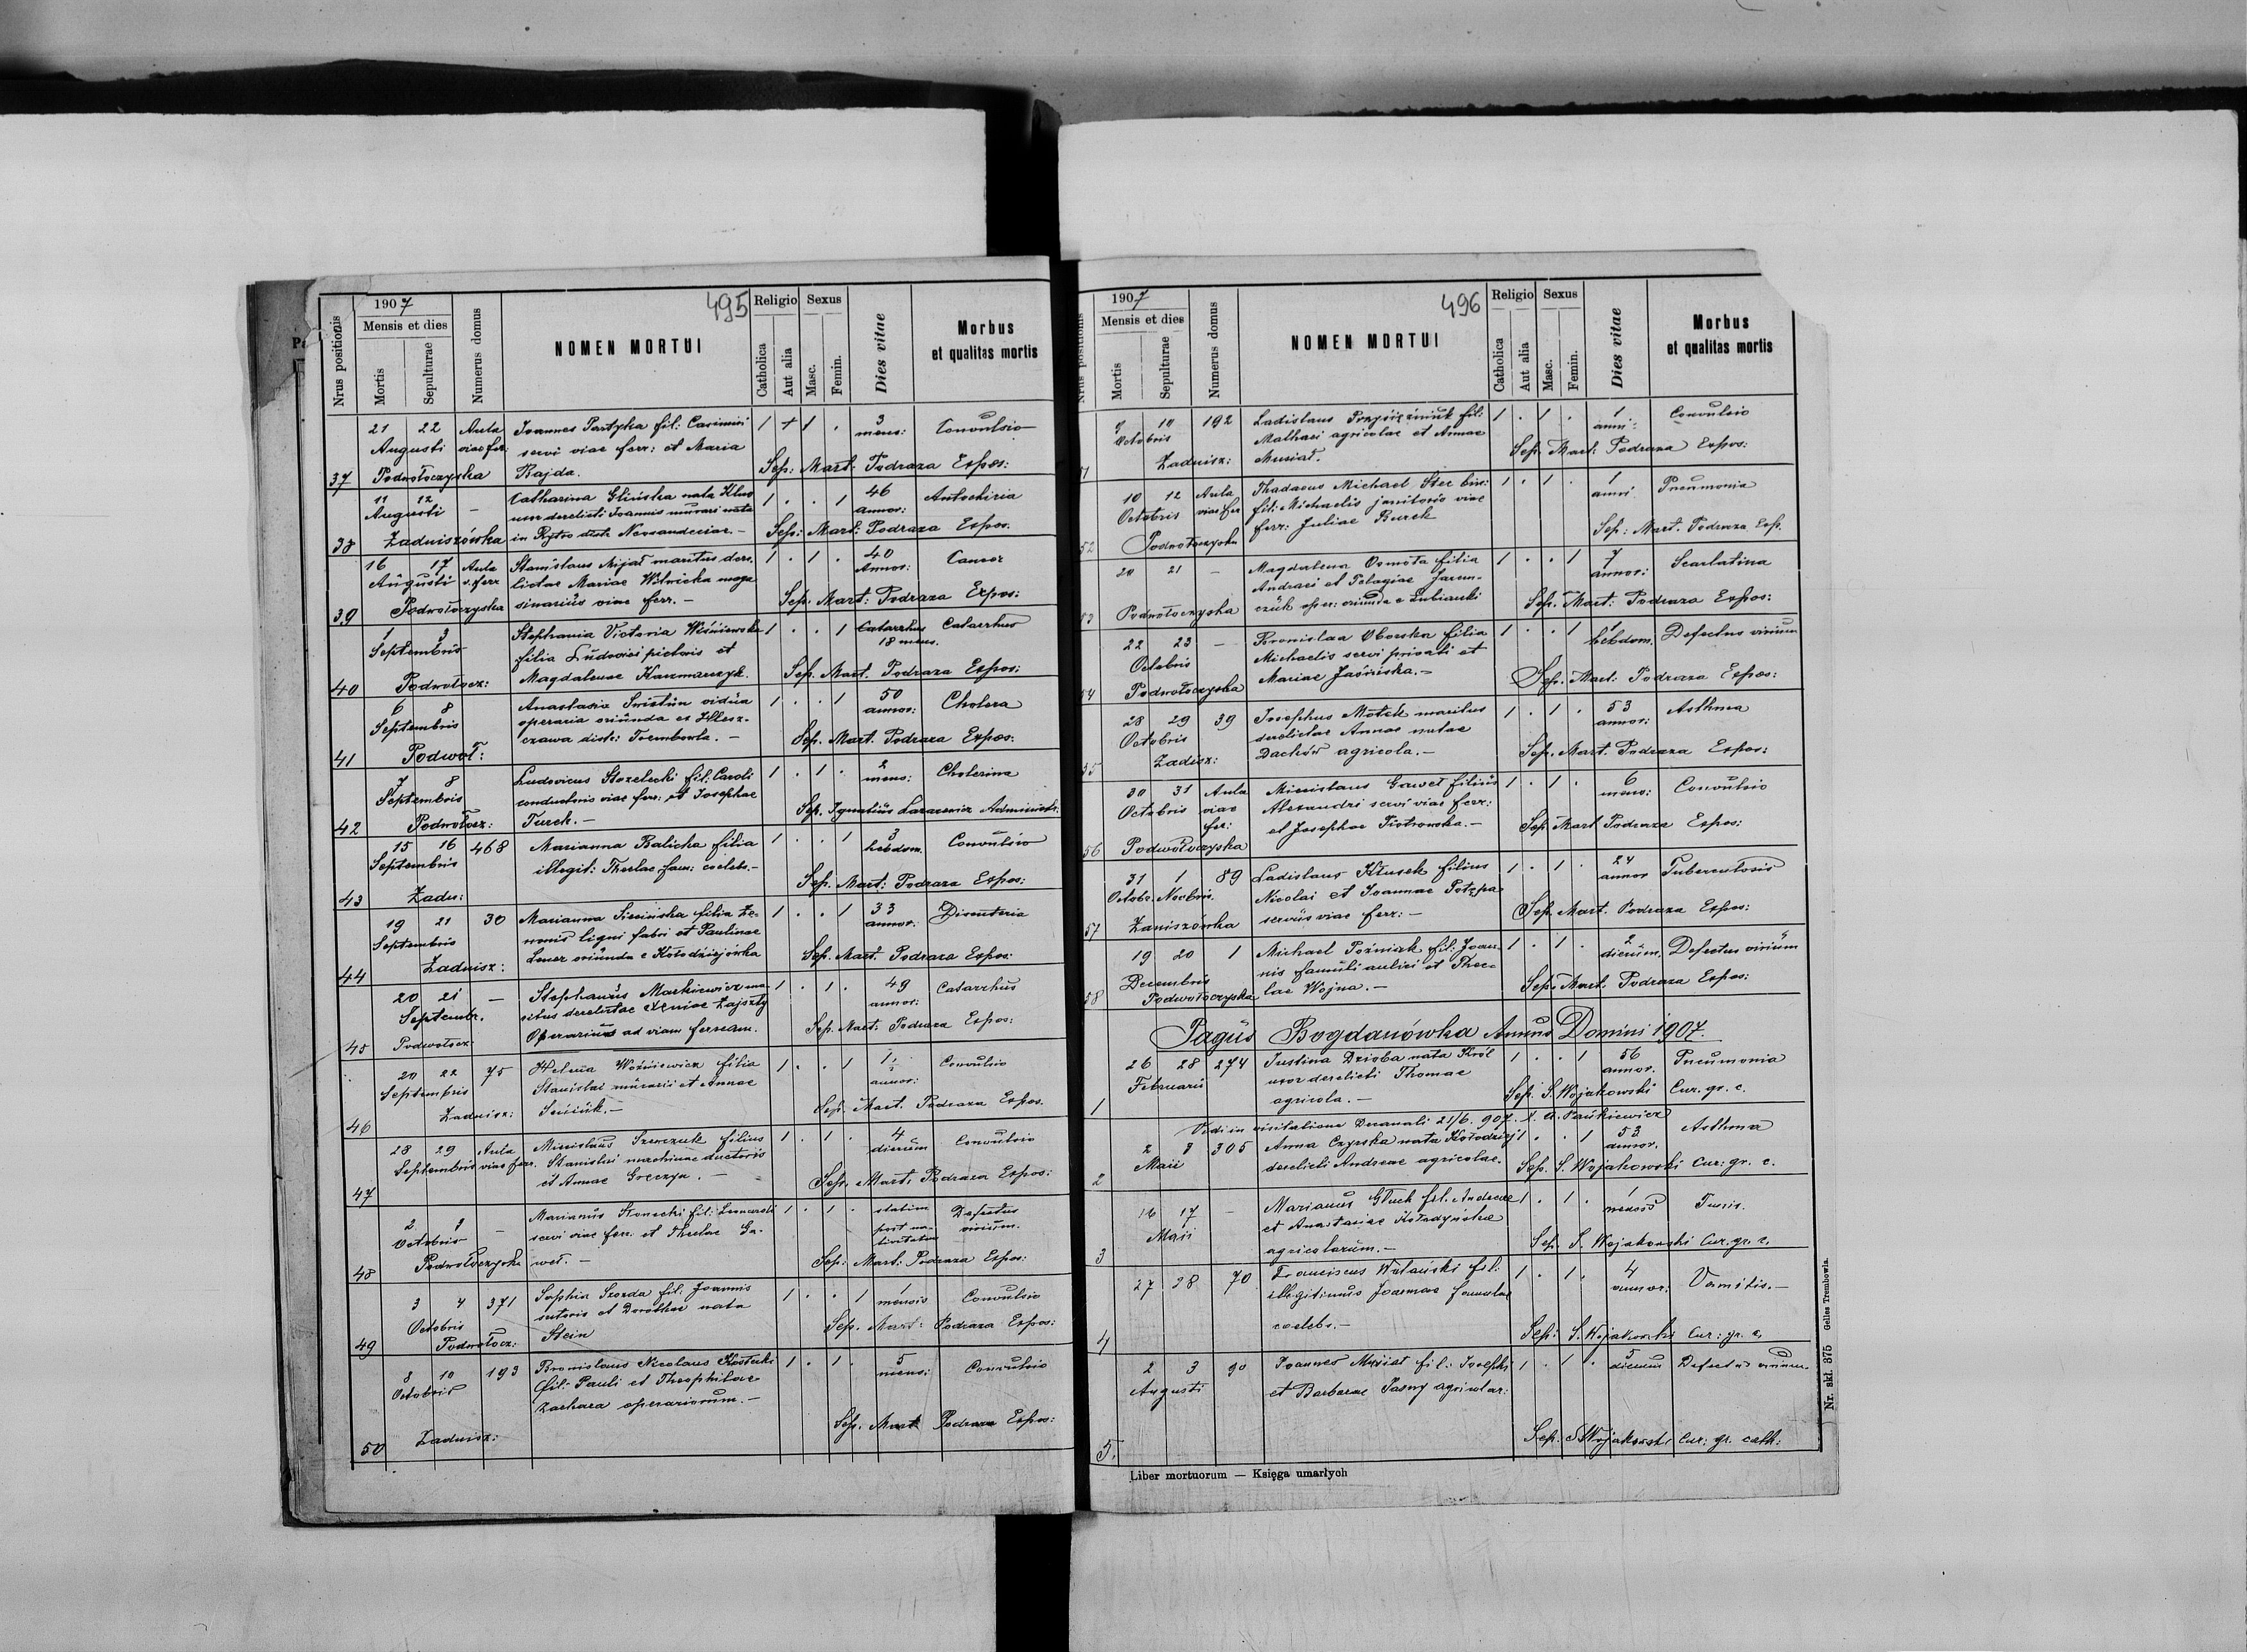 495
1907
Mensis et dies
Religio
Sexus
Nrus positionis
Mortis
Sepulturae
Numerus domus
NOMEN MORTUI
Catholica
Aut alia
Masc.
Femin.
Dies vitae
Morbus
et qualitas mortis
21 22 Aula Joannes Partyka fil: Casimiri 1 + 1 . 3 Convulsio
Augusti viae ferr: servi viae ferr: et Maria mens:
37 Podwołoczyska Bajda. Sep: Mart: Podraza Expos:
11 12 Catharina Glińska nata 1 . . 1 46 Autochiria
Augusti - uxor derelicti Joannis murari nata annor:
38 Zadniszówka in Rytro distr. Neosandeciae. - Sep: Mart: Podraza Expos.
16 17 Aula Stanislaus Mijał maritus dere 1 . 1 . 40 Cancer
Augusti v. ferr lictae Mariae Wilnicka maga Annor:
39 Podwołoczyska sinarius viae ferr. - Sep. Mart: Podraza Expos:
1 3 Stephania Victoria Wiśniewska 1 . . 1 Catarrhus Catarrhus
Septembris filia Ludovici pictoris et 18 mens.
40 Podwołocz: Magdalenae Kaczmarczyk. Sep. Mart. Podraza Expos:
6 8 Anastasia vidua 1 . . 1 50 Cholera
Septembris operaria oriunda ex annor:
41 Podwoł: distr: Trembowla. - Sep. Mart. Podraza Expos:
7 8 Ludovicus Strzelecki fil: Caroli 1 . 1 . 2 Cholerina
Septembris conductoris viae ferr: et Josephae mens:
42 Podwołocz: Turek. - Sep. Ignatius Administr.
15 16 468 Marianna Balicka filia 1 . . 1 3 Convulsio
Septembris illegit: Theclae fam: coelebs. - hebdom.
43 Zadn: Sep. Mart: Podraza Expos:
19 21 30 Marianna filia Ze- 1 . . 1 33 Disenteria
Septembris nonis ligni fabri et Paulinae annor.
44 Zadnisz: oriunda e Kołodziejówka Sep. Mart. Podraza Expos:
20 21 - Stephanus Markiewicz ma- 1 . 1 . 49 Catarrhus
Septembr. ritus derelictae Xeniae annor:
45 Podwołocz: Operarius ad viam ferream. Sep. Mart: Podraza Expos:
20 22 75 Helena Woźniewicz filia 1 . . 1 Convulsio
Septembris Stanislai murarii et Annae annor:
46 Zadnisz: Sep. Mart. Podraza Expos.
28 29 Aula Miecislaus Szewczuk filius 1 . 1 . 4 Convulsio
Septembris viae ferr. Stanislai machinae ductoris dierum
47 et Annae Greczyn. - Sep. Mart. Podraza Expos:
2 - Marianus Słonecki fil: 1 . 1 . statim Defectus
Octobris servi viae ferr. et Theclae Ga- post na- virium.
tivitatem
48 Podwołoczyska weł. - Sep: Mart: Podraza Expos:
3 4 371 Sophia fil: Joannis 1 . . 1 1 Convulsio
Octobris sutoris et Dorothae nata mensis
49 Podwołocz: Stein Sep. Mart: Podraza Expos:
8 10 193 Bronislaus Nicolaus 1 . 1 . 5 Convulsio
Octobris fil: Pauli et Theophilae mens:
Zachara operariorum. -
50 Zadnisz: Sep. Mart Podraza Expos:
496
1907
Mensis et dies
Religio
Sexus
Nrus positionis
Mortis
Sepulturae
Numerus domus
NOMEN MORTUI
Catholica
Aut alia
Masc.
Femin.
Dies vitae
Morbus
et qualitas mortis
9 10 192 Ladislaus Przysiężniuk fil: 1 . 1 . 1 Convulsio
Octobris Mathaei agricolae et Annae anni:
51 Zadnisz: Musiał. Sep. Mart: Podraza Expos:
10 12 Aula Thadaeus Michael Stec 1 . 1 . 1 Pneumonia
Octobris viae fer fil: Michaelis janitoris viae anni
52 Podwołoczyska ferr: Juliae Burek Sep: Mart. Podraza Exp.
20 21 - Magdalena filia 1 . . 1 7 Scarlatina
Andraei et Pelagiae Jarem- annor:
53 Podwołoczyska czuk oper: oriunda e Łubianki Sep. Mart: Podraza Expos:
22 23 - Bronislava Oborska filia 1 . . 1 1 Defectus virium
Octobris Michaelis servi privati et hebdom.
54 Podwołoczyska Mariae Jasińska. - Sep. Mart: Podraza Expos:
28 29 39 Josephus Motek maritus 1 . 1 . 53 Asthma
Octobris derelictae Annae natae annor:
55 Zadisz: Dachów agricola. - Sep. Mart. Podraza Expos:
30 31 Aula Miecislaus Gaweł filius 1 . 1 . 6 Convulsio
Octobris viae Alexandri servi viae ferr: mens:
fer: et Josephae Piotrowska. - Sep. Mart Podraza Expos:
56 Podwołoczyska
31 1 89 Ladislaus Kłusek filius 1 . 1 . 24 Tuberculosis
Octobr. Novbris. Nicolai et Joannae annor
57 Zaniszówka servus viae ferr: - Sep. Mart. Podraza Expos:
19 20 1 Michael Poźniak fil: Joan- 1 . 1 . 2 Defectus virium
Decembris nis famuli aulici et Thec- dierum.
58 Podwołoczyska lae Wojna. - Sep. Mart. Podraza Expos:
Pagus Bogdanówka Annus Domini 1907.
26 28 274 Justina Dzioba nata Król 1 . . 1 56 Pneumonia
Februarii uxor derelicti Thomae annor.
1 agricola. - Sep. S. Wojakowski Cur. gr. c.
Vidi in visitatione Decanali 21/6. 907.
2 305 Anna Czyrska nata Kołodziej 1 . . 1 53 Asthma
Maii derelicti Andreae agricolae. annor.
2 Sep. S. Wojakowski Cur: gr. c.
16 17 - Marianus Głuch fil. Andreae 1 . 1 . 1 Tussis.
Maji et Anastasiae mensis
3 agricolarum. - Sep. S. Wojakowski Cur. gr. c.
27 28 70 Franciscus fil: 1 . 1 . 4 Vomitis. -
illegitimus Joannae famulae annor:
4 coelebs. - Sep: S. Wojakowski Cur: gr. c.
2 3 90 Joannes fil: Josephi 1 . 1 . 5 Defectus virium.
Augusti et Barbarae Jasny agricolar: dierum
5. Sep. S Wojakowski Cur: gr. cath:
Liber mortuorum — Księga umarłych
Nr. skł. 875 Gelles Trembowla.